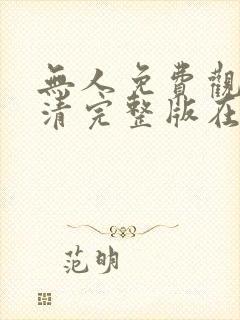 無人免費觀
清完整版在
范明